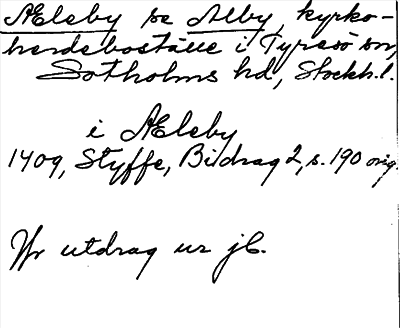 Æleby se Alby, kyrko-
herdeboställe i Tyresö sn,
Sotholms hd, Stockh.l.
i Æleby
1409, Styffe, Bidrag 2, s. 190 orig.
Yr utdrag ur jb.